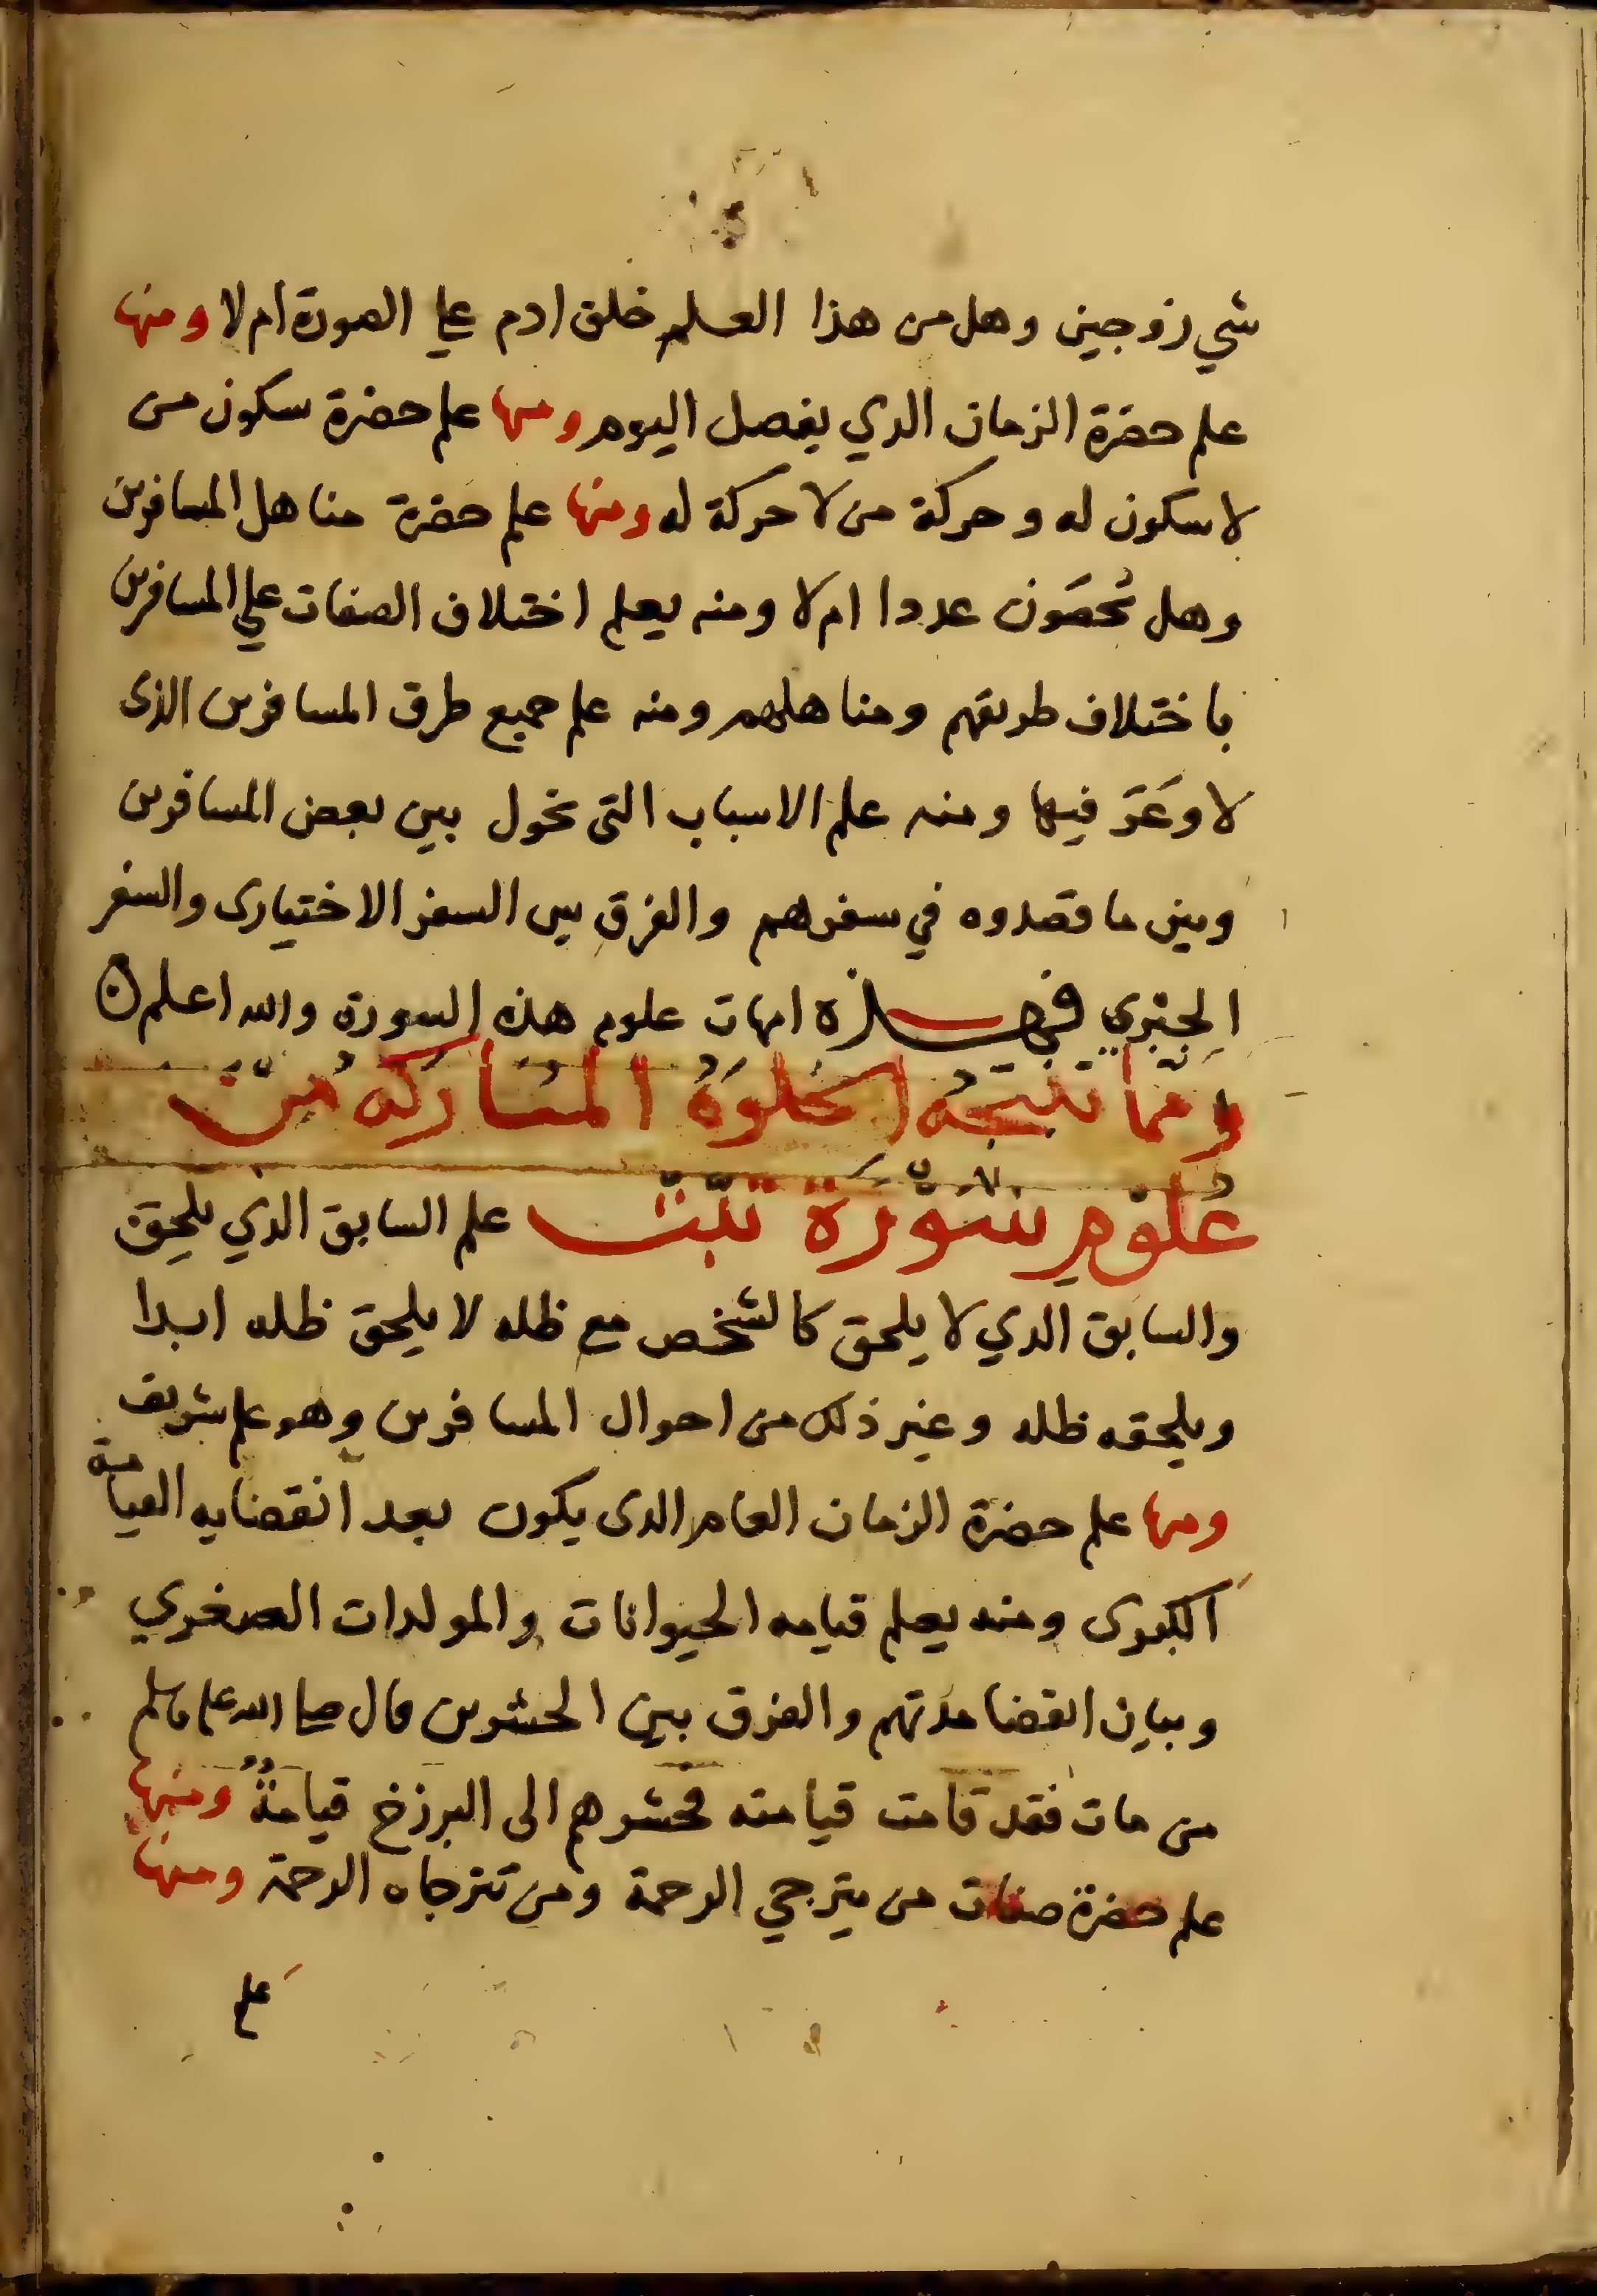 شي زوجين وهل من هذا العلم خلق ادم علي الصورة ام لا ومنها
علم حضرة الزمان الذي يفصل اليوم ومنها علم حضرة سكون من
لا سكون له وحركة من لا حركة له ومنها علم حضرة مناهل المسافرين
وهل تُحصَون عددا ام لا ومنه يعلم اختلاف الصفات علي المسافرين
باختلاف طريقهم ومناهلهم ومنه علم جميع طرق المسافرين الذى
لا وَعَرَ فيها ومنه علم الاسباب التى تحول بين بعض المسافرين
وبين ما قصدوه في سفرهم والفرق بين السفر الاختيارى والسفر
الجبْري فهـذه امهات علوم هذه السورة والله اعلم ن
ومما تنتجه الخلوة المباركة من
عُلوْمِ سُوْرَة تَبَّتْ علم السابق الذي يلحق
والسابق الذي لا يلحق كالشخص مع ظله لا يلحق ظله ابدا
ويلحقه ظله وغير ذلك من احوال المسافرين وهو علم شريف
ومنها علم حضرة الزمان العام الذى يكون بعد انقضايه القيامة
الكبرى ومنه يعلم قيامه الحيوانات والمولدات الصغري
وبيان انقضا مدتهم والفرق بين الحشرين قال صلى الله عليه وسلم
من مات فقد قامت قيامته فحشرهم الى البرزخ قيامةٌ ومنها
علم حضرة صفات من يترجي الرحمة ومن تترجاه الرحمة ومنها
علم